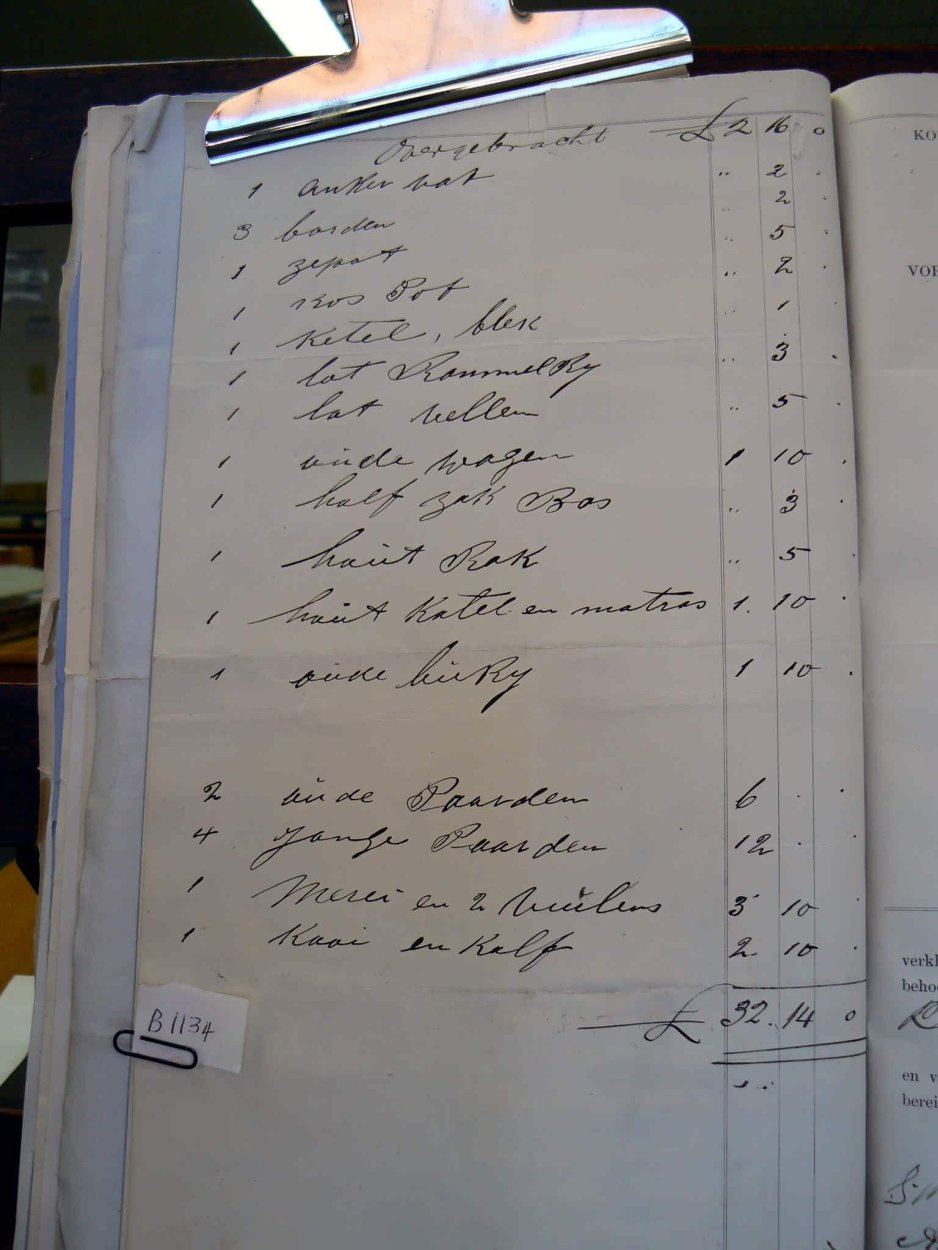 Overgebracht £ 2 16 0
1 anker vat " 2 .
3 borden " 2
1 zepot " 5 .
1 kos Pot " 2 .
1 Ketel, blek " 1 .
1 lot RommelRy " 3 .
1 lot vellen " 5 .
1 oude wagen 1 10 .
1 half zak Bos " 3 .
1 hout Rak " 5 .
1 hout Katel en matras 1. 10 .
1 oude buRy 1 10 .
2 oude Paarden 6 . .
4 Jonge Paarden 12 . .
1 Merei en 2 vuilens 3 10 .
1 Kooi en Kalf 2 10 .
£ 32. 14 0
B 1134
KO
VO
verkl
behoe
en v
berei